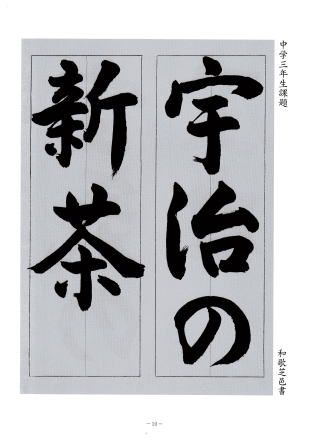 中学三年生課題
宇治の
新茶
和歌芝邑書
－10－